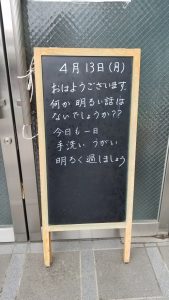 4月13日(月)
おはようございます。
何か明るい話は
ないでしょうか??
今日も一日
手洗い うがい
明るく過しましょう